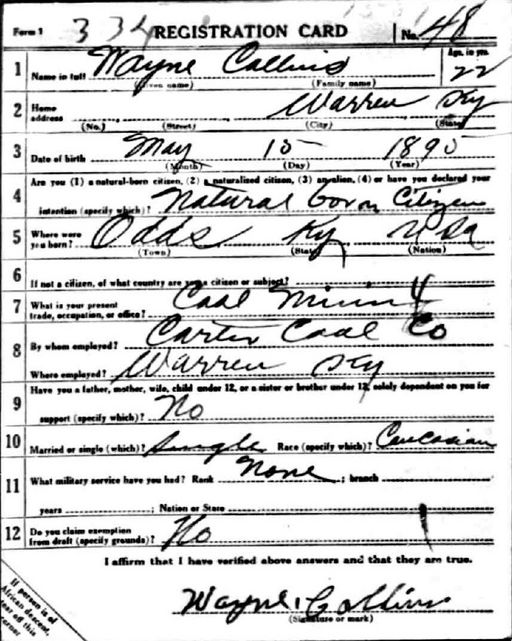 Form 1 334 REGISTRATION CARD No. 48
1 Name in full Wayne Collins Age, in yrs. 22
(Given name) (Family name)
2 Home address Warren Ky
(No.) (Street) (City) (State)
3 Date of birth May 15 1895
(Month) (Day) (Year)
4 Are you (1) a natural-born citizen, (2) a naturalized citizen, (3) an alien, (4) or have you declared your
intention (specify which)? Natural born Citizen
5 Where were you born? Odds Ky USa
(Town) (State) (Nation)
6 If not a citizen, of what country are you a citizen or subject?
7 What is your present trade, occupation, or office? Coal Mining
8 By whom employed? Carter Coal Co
Where employed? Warren Ky
9 Have you a father, mother, wife, child under 12, or a sister or brother under 12, solely dependent on you for
support (specify which)? No
10 Married or single (which)? Single Race (specify which)? Caucasian
11 What military service have you had? Rank None ; branch
years ; Nation or State
12 Do you claim exemption from draft (specify grounds)? No
I affirm that I have verified above answers and that they are true.
Wayne Collins
(Signature or mark)
If person is of
African descent,
tear off this
corner